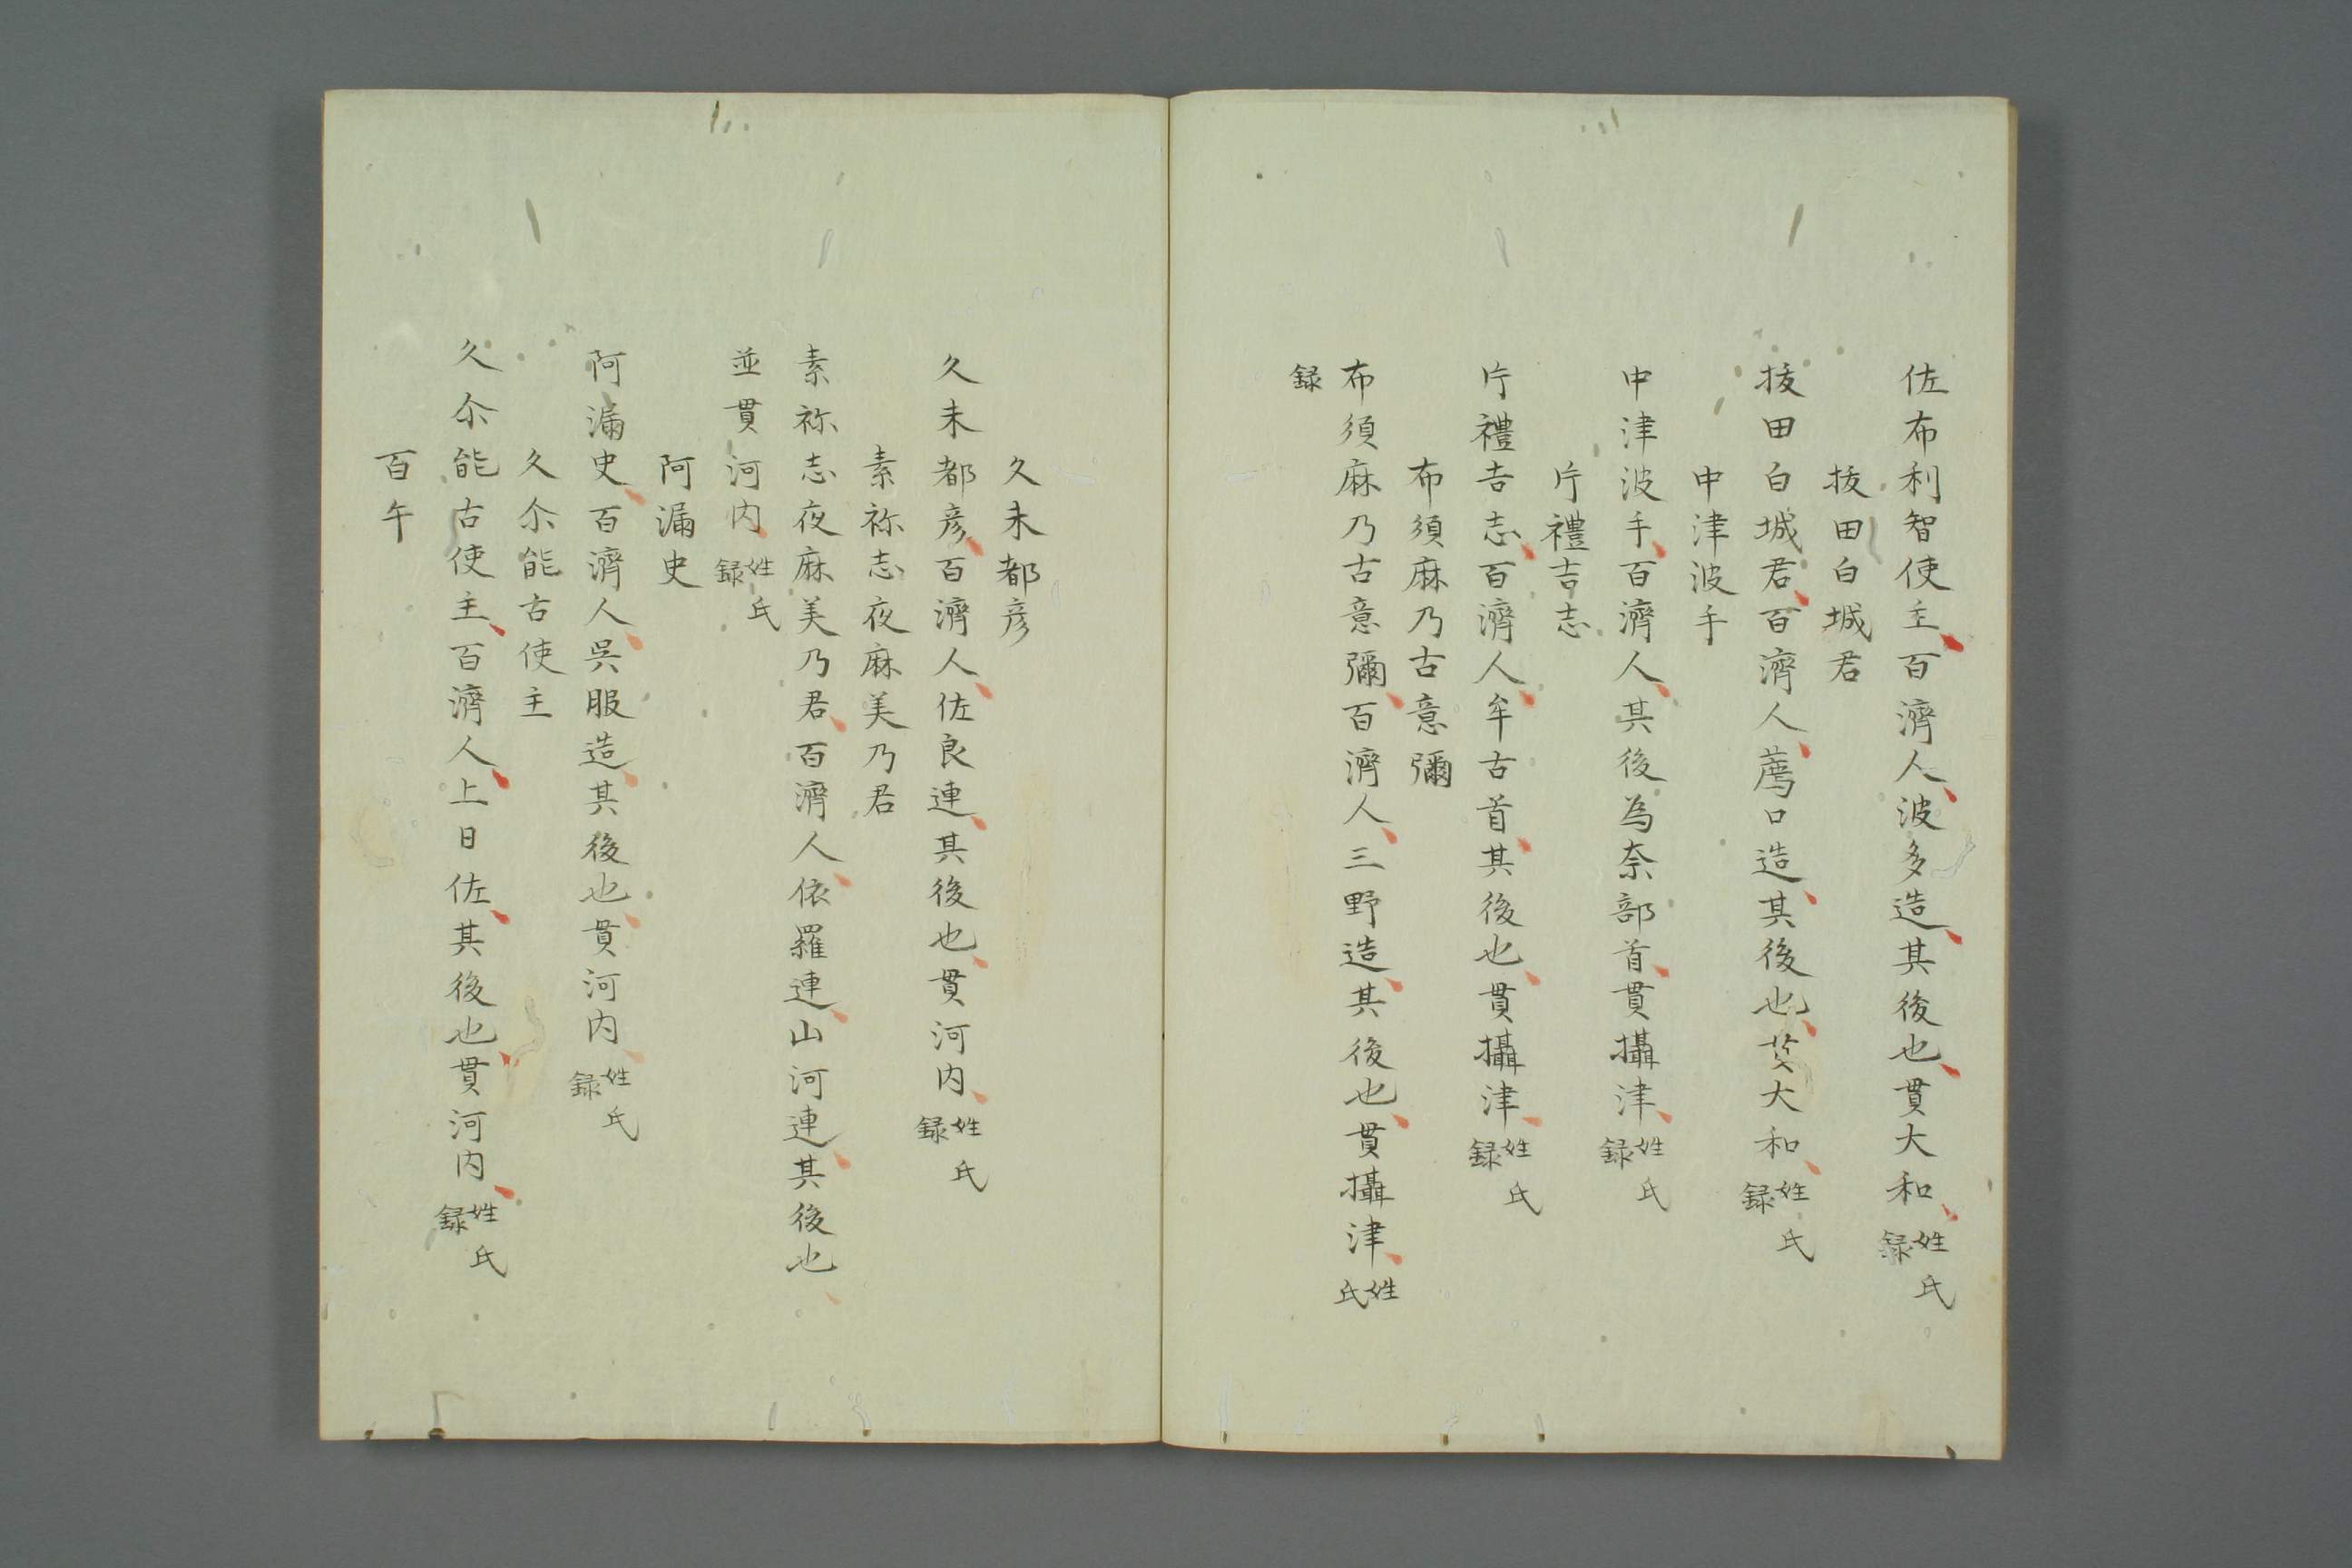 佐布利智使主百濟人波多造其後也貫大和姓氏録
抜田白城君
抜田白城君百濟人薦口造其後也茇大和姓氏録
中津波手
中津波手百濟人其後為奈部首貫攝津姓氏録
片禮吉志
片禮吉志百濟人牟古首其後也貫攝津姓氏録
布須麻乃古意彌
布須麻乃古意彌百濟人三野造其後也貫攝津姓氏
録
久未都彦
久未都彦百濟人佐良連其後也貫河内姓氏録
素祢志夜麻美乃君
素祢志夜麻美乃君百濟人依羅連山河連其後也
並貫河内姓氏録
阿漏史
阿漏史百濟人呉服造其後也貫河内姓氏録
久尒能古使主
久尒能古使主百濟人上日佐其後也貫河内姓氏録
百午